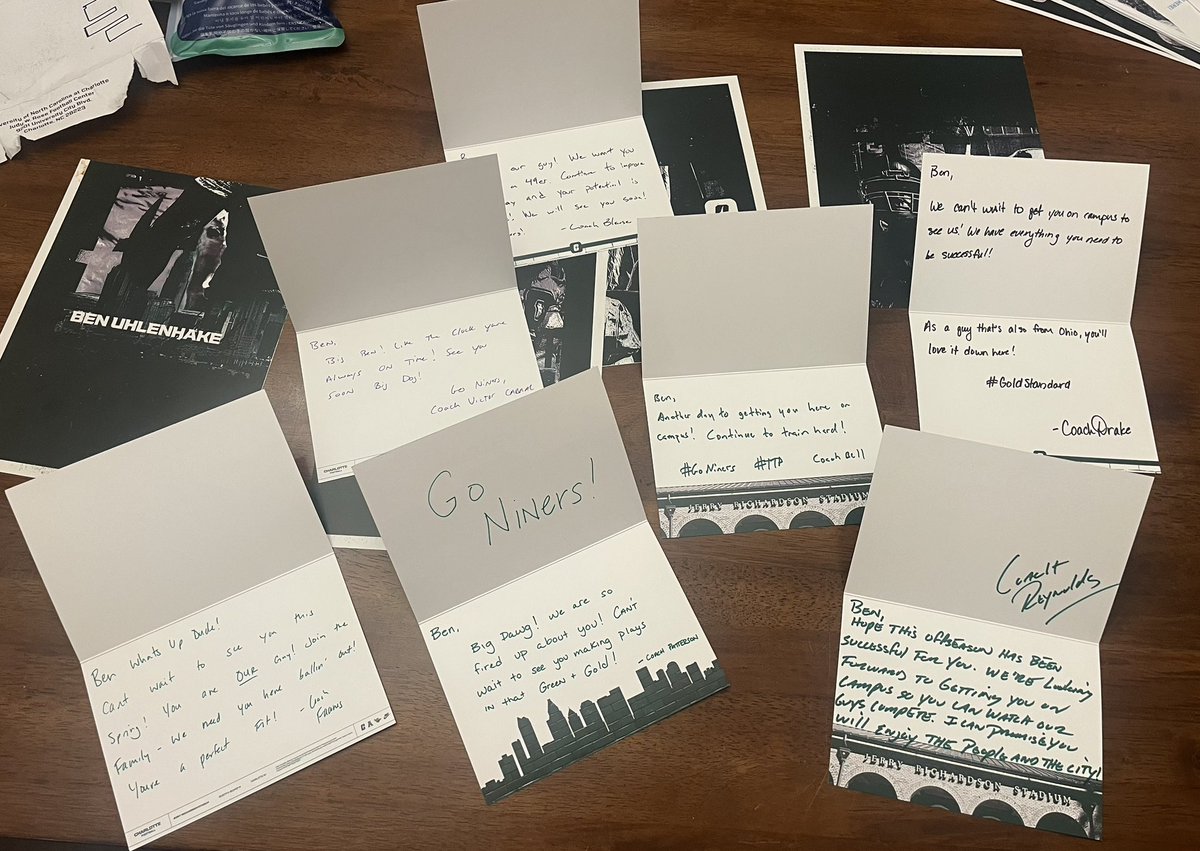 University of North Carolina at Charlotte
Judy W. Rose Football Center
University City Blvd.
Charlotte, NC 28223
BEN UHLENHAKE
our guy! We want you
a 49er. Continue to improve
and your potential is
! We will see you soon!
- Coach Blaise
Ben,
We can't wait to get you on campus to
see us! We have everything you need to
be successful!
As a guy that's also from Ohio, you'll
love it down here!
#GoldStandard
- Coach Drake
Ben,
Big Ben! Like the Clock youre
Always ON Time! See you
soon Big Dog!
Go Niners,
Coach Victor Cabral
CHARLOTTE
Ben,
Another day to getting you here on
campus! Continue to train hard!
#GoNiners #TTP Coach Bell
JERRY RICHARDSON STADIUM
Ben Whats Up Dude!
Cant wait to see you this
Spring! You are OUR Guy! Join the
Family - We need you here ballin' out!
Youre a perfect Fit! - Coach
CHARLOTTE
FOOTBALL
Go
Niners!
Ben,
Big Dawg! We are so
fired up about you! Can't
wait to see you making plays
in that Green + Gold!
- Coach Patterson
Coach
Reynolds
BEN,
HOPE THIS OFFSEASON HAS BEEN
SUCCESSFUL FOR YOU. WE'RE LOOKING
FORWARD TO GETTING YOU ON
CAMPUS SO YOU CAN WATCH OUR
GUYS COMPETE. I CAN PROMISE YOU
WILL ENJOY THE PEOPLE AND THE CITY!
JERRY RICHARDSON STADIUM